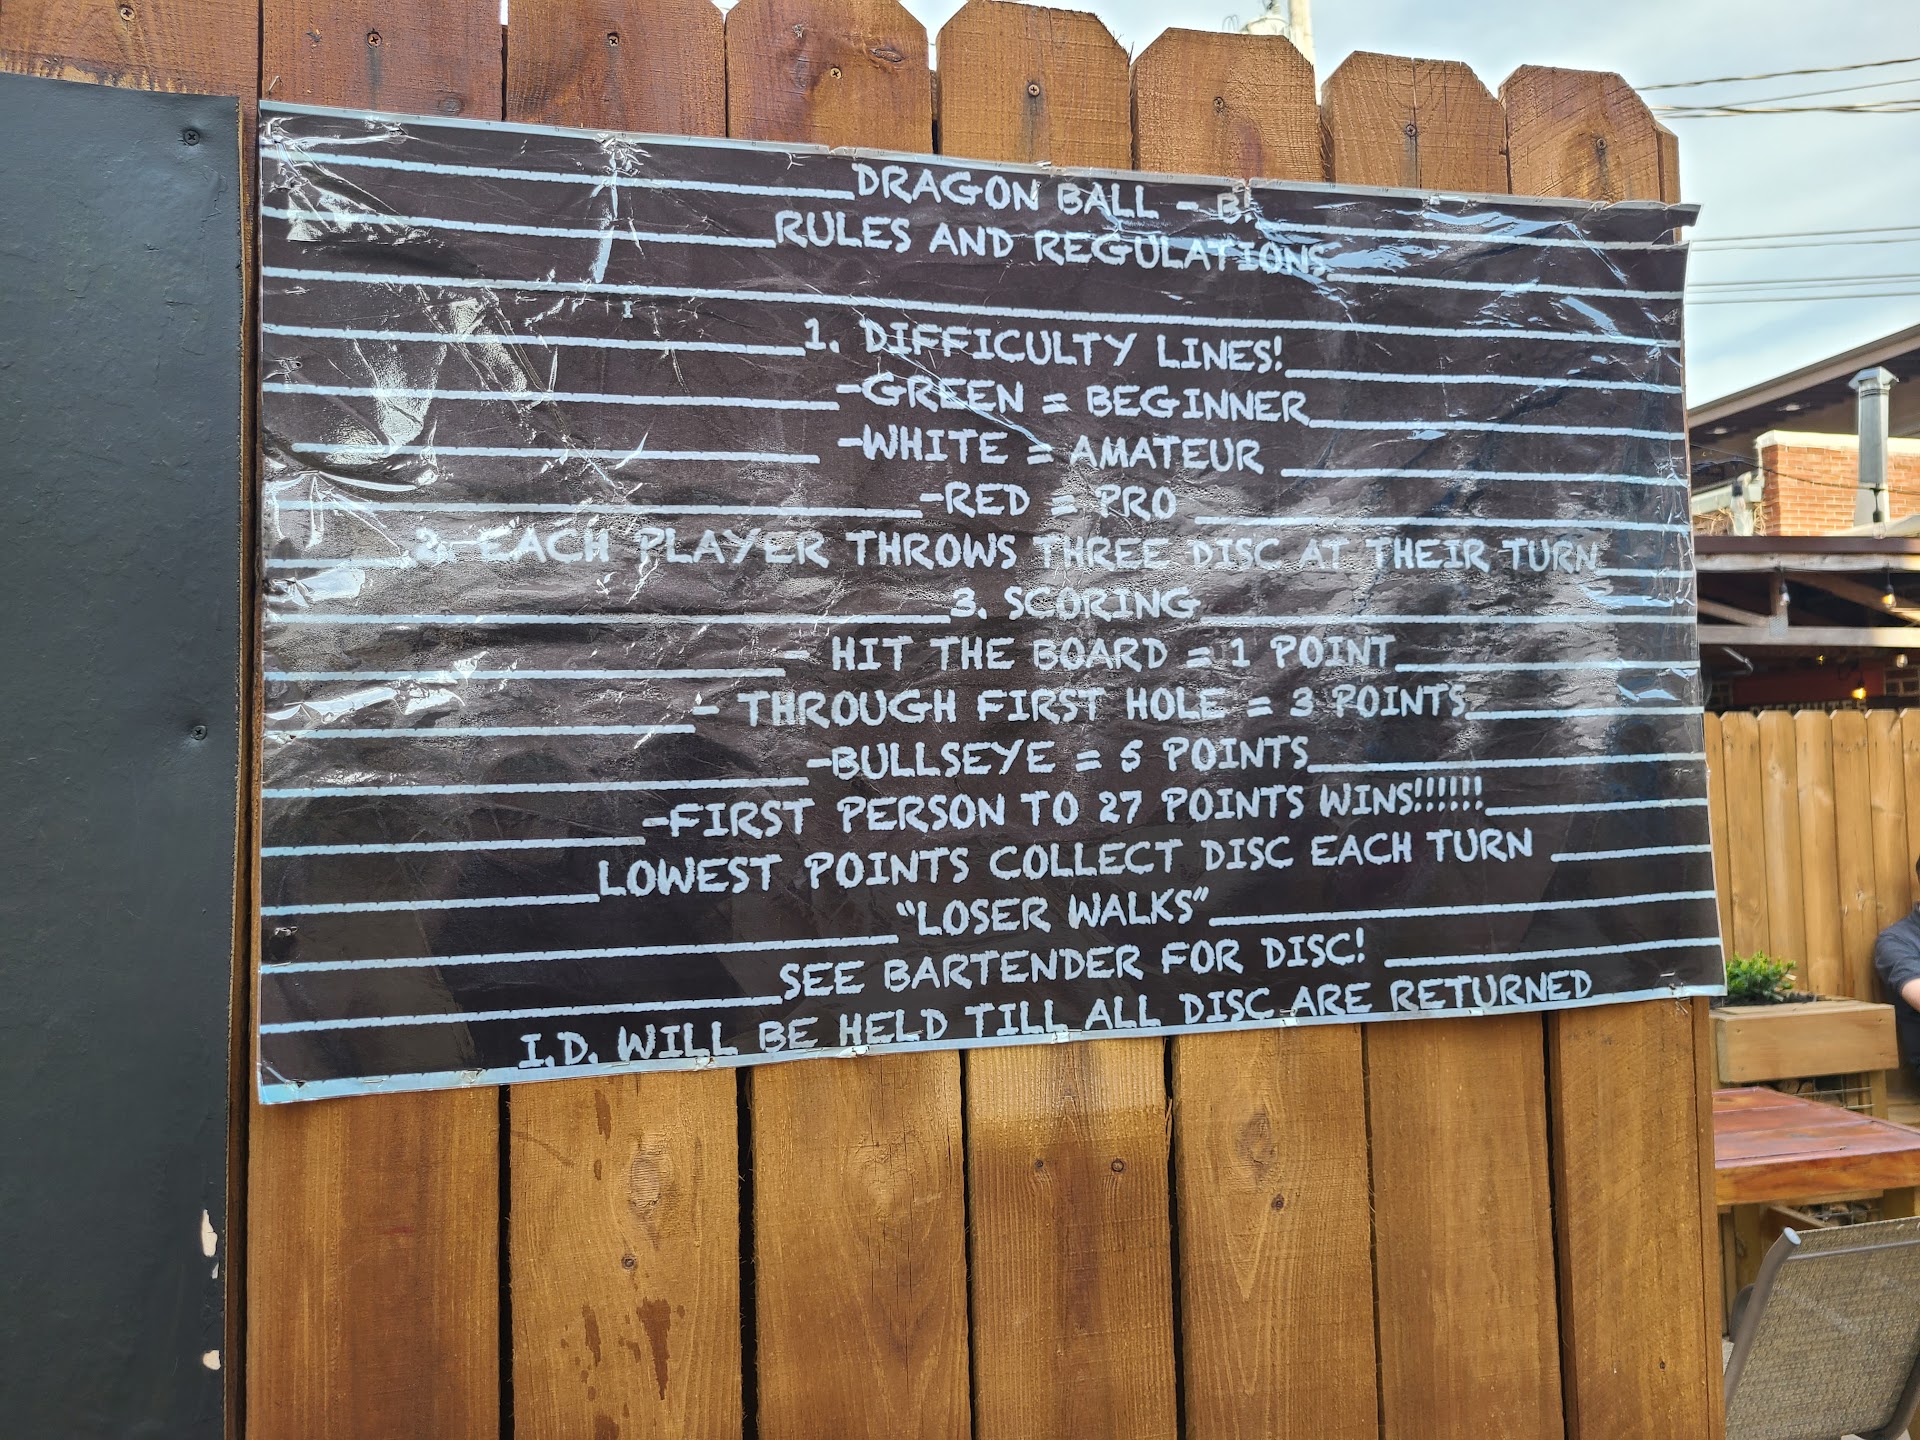 DRAGON BALL - B!
RULES AND REGULATIONS
1. DIFFICULTY LINES!
-GREEN = BEGINNER
-WHITE = AMATEUR
-RED = PRO
2. EACH PLAYER THROWS THREE DISC AT THEIR TURN
3. SCORING
- HIT THE BOARD = 1 POINT
- THROUGH FIRST HOLE = 3 POINTS
-BULLSEYE = 5 POINTS
-FIRST PERSON TO 27 POINTS WINS!!!!!!
LOWEST POINTS COLLECT DISC EACH TURN
"LOSER WALKS"
SEE BARTENDER FOR DISC!
I.D. WILL BE HELD TILL ALL DISC ARE RETURNED